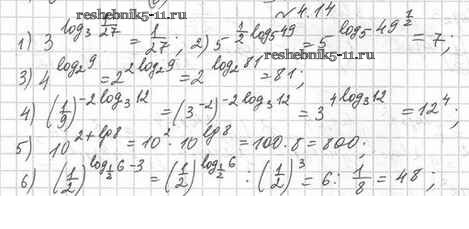 reshebnik5-11.ru
№ 4.14
1) 3^{log_3 1/27} = 1/27; 2) 5^{1/2 log_5 49} = 5^{log_5 49^{1/2}} = 7;
3) 4^{log_2 9} = 2^{2 log_2 9} = 2^{log_2 81} = 81;
4) (1/9)^{-2 log_3 12} = (3^{-2})^{-2 log_3 12} = 3^{4 log_3 12} = 12^4;
5) 10^{2+lg 8} = 10^2 · 10^{lg 8} = 100 · 8 = 800;
6) (1/2)^{log_{1/2} 6 - 3} = (1/2)^{log_{1/2} 6} : (1/2)^3 = 6 : 1/8 = 48;
reshebnik5-11.ru